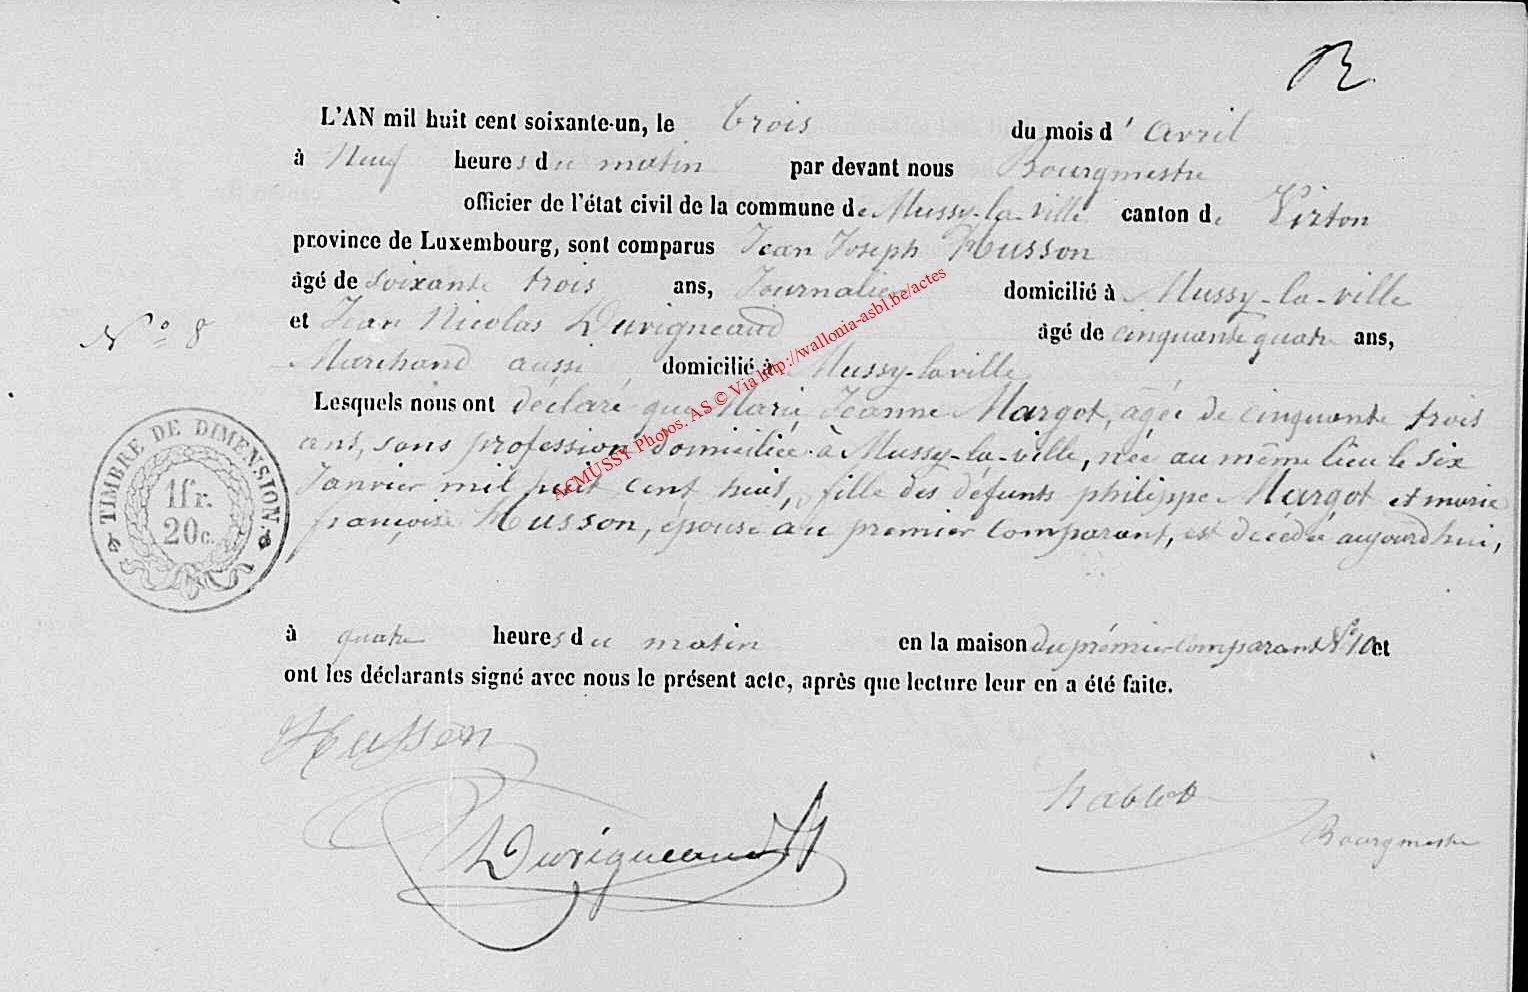 B.
L'AN mil huit cent soixante-un, le trois du mois d' avril
à Neuf heures du matin par devant nous Bourgmestre
officier de l'état civil de la commune de Mussy-la-ville canton de Virton
province de Luxembourg, sont comparus Jean Joseph Husson
âgé de soixante trois ans, Journalier domicilié à Mussy-la-ville
et Jean Nicolas Duvigneaud âgé de cinquante quatre ans,
N° 8
Marchand aussi domicilié à Mussy-laville
Lesquels nous ont déclaré que Marie Jeanne Margot, agée de cinquante trois
ans, sans profession domiciliée à Mussy-la-ville, née au même lieu le six
Janvier mil huit cent huit, fille des défunts philippe Margot et marie
françoise Husson, épouse au premier comparant, est décédée aujourd'hui,
TIMBRE DE DIMENSION.
1fr.
20c.
à quatre heures du matin en la maison du prémier comparant N° 10 et
ont les déclarants signé avec nous le présent acte, après que lecture leur en a été faite.
Husson
Duvigneaud
Bourgmestre
ACMUSSY Photos. AS © Via http://wallonia-asbl.be/actes